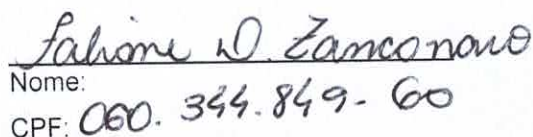 Fabione D. Zanconaro
Nome:
CPF: 060.344.849-60